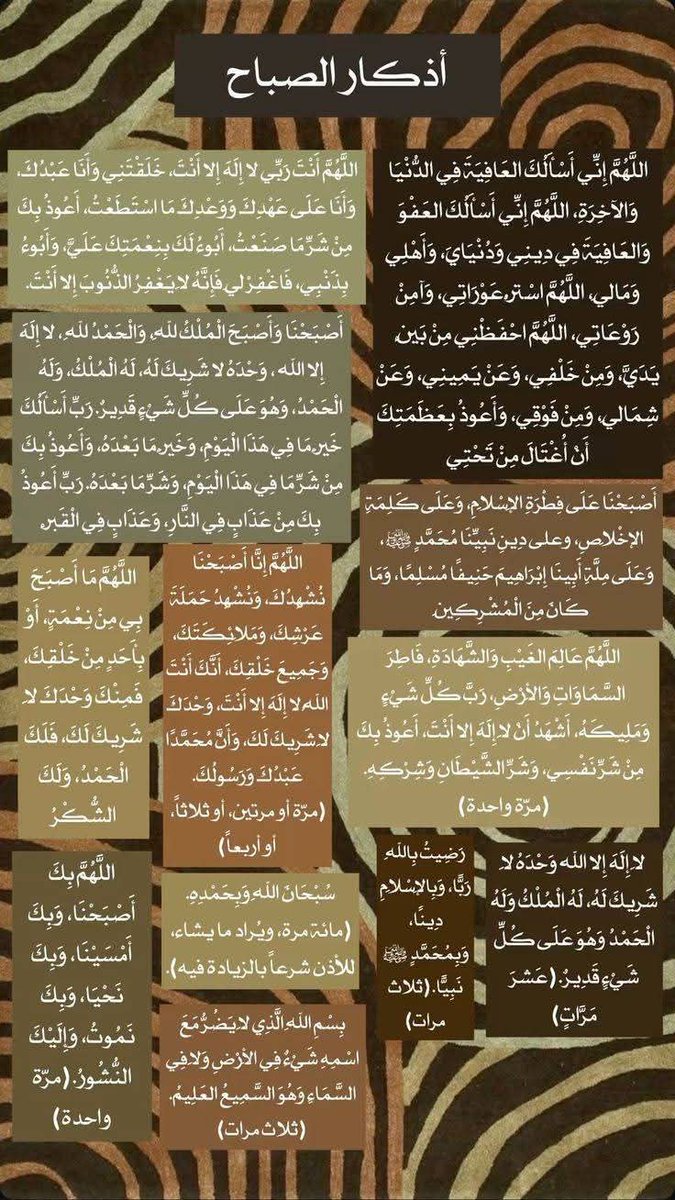 أذكار الصباح
اللَّهُمَّ إِنِّي أَسْأَلُكَ العَافِيَةَ فِي الدُّنْيَا
وَالآخِرَةِ، اللَّهُمَّ إِنِّي أَسْأَلُكَ العَفْوَ
وَالعَافِيَةَ فِي دِينِي وَدُنْيَايَ، وَأَهْلِي
وَمَالِي، اللَّهُمَّ اسْتُرْ عَوْرَاتِي، وَآمِنْ
رَوْعَاتِي، اللَّهُمَّ احْفَظْنِي مِنْ بَيْنِ
يَدَيَّ، وَمِنْ خَلْفِي، وَعَنْ يَمِينِي، وَعَنْ
شِمَالِي، وَمِنْ فَوْقِي، وَأَعُوذُ بِعَظَمَتِكَ
أَنْ أُغْتَالَ مِنْ تَحْتِي
اللَّهُمَّ أَنْتَ رَبِّي لا إِلَهَ إِلا أَنْتَ، خَلَقْتَنِي وَأَنَا عَبْدُكَ،
وَأَنَا عَلَى عَهْدِكَ وَوَعْدِكَ مَا اسْتَطَعْتُ، أَعُوذُ بِكَ
مِنْ شَرِّ مَا صَنَعْتُ، أَبُوءُ لَكَ بِنِعْمَتِكَ عَلَيَّ، وَأَبُوءُ
بِذَنْبِي، فَاغْفِرْ لِي فَإِنَّهُ لا يَغْفِرُ الذُّنُوبَ إِلا أَنْتَ.
أَصْبَحْنَا وَأَصْبَحَ الْمُلْكُ للهِ، وَالْحَمْدُ للهِ، لا إِلَهَ
إِلا الله ، وَحْدَهُ لا شَرِيكَ لَهُ، لَهُ الْمُلْكُ، وَلَهُ
الْحَمْدُ، وَهُوَ عَلَى كُلِّ شَيْءٍ قَدِيرٌ. رَبِّ أَسْأَلُكَ
خَيْرَ مَا فِي هَذَا الْيَوْمِ، وَخَيْرَ مَا بَعْدَهُ، وَأَعُوذُ بِكَ
مِنْ شَرِّ مَا فِي هَذَا الْيَوْمِ، وَشَرِّ مَا بَعْدَهُ. رَبِّ أَعُوذُ
بِكَ مِنْ عَذَابٍ فِي النَّارِ، وَعَذَابٍ فِي الْقَبْرِ.
أَصْبَحْنَا عَلَى فِطْرَةِ الإِسْلامِ، وَعَلَى كَلِمَةِ
الإِخْلاصِ، وعلى دِينِ نَبِيِّنَا مُحَمَّدٍ ﷺ،
وَعَلَى مِلَّةِ أَبِينَا إِبْرَاهِيمَ حَنِيفًا مُسْلِمًا، وَمَا
كَانَ مِنَ الْمُشْرِكِينَ.
اللَّهُمَّ إِنَّا أَصْبَحْنَا
نُشْهِدُكَ، وَنُشْهِدُ حَمَلَةَ
عَرْشِكَ، وَمَلائِكَتَكَ،
وَجَمِيعَ خَلْقِكَ، أَنَّكَ أَنْتَ
الله لا إِلَهَ إِلا أَنْتَ، وَحْدَكَ
لا شَرِيكَ لَكَ، وَأَنَّ مُحَمَّدًا
عَبْدُكَ وَرَسُولُكَ.
(مرّة أو مرتين، أو ثلاثاً،
أو أربعاً)
اللَّهُمَّ مَا أَصْبَحَ
بِي مِنْ نِعْمَةٍ، أَوْ
بِأَحَدٍ مِنْ خَلْقِكَ،
فَمِنْكَ وَحْدَكَ لا
شَرِيكَ لَكَ، فَلَكَ
الْحَمْدُ، وَلَكَ
الشُّكْرُ
اللَّهُمَّ عَالِمَ الغَيْبِ وَالشَّهَادَةِ، فَاطِرَ
السَّمَاوَاتِ وَالأَرْضِ، رَبَّ كُلِّ شَيْءٍ
وَمَلِيكَهُ، أَشْهَدُ أَنْ لا إِلَهَ إِلا أَنْتَ، أَعُوذُ بِكَ
مِنْ شَرِّ نَفْسِي، وَشَرِّ الشَّيْطَانِ وَشِرْكِهِ.
(مرّة واحدة)
لا إِلَهَ إِلا الله وَحْدَهُ لا
شَرِيكَ لَهُ، لَهُ الْمُلْكُ وَلَهُ
الْحَمْدُ وَهُوَ عَلَى كُلِّ
شَيْءٍ قَدِيرٌ. (عَشرَ
مَرَّاتٍ)
رَضِيتُ بِاللهِ
رَبًّا، وَبِالإِسْلامِ
دِينًا،
وَبِمُحَمَّدٍ ﷺ
نَبِيًّا. (ثلاث
مرات)
سُبْحَانَ اللهِ وَبِحَمْدِهِ.
(مائة مرة، ويُراد ما يشاء،
للأذن شرعاً بالزيادة فيه).
بِسْمِ اللهِ الَّذِي لا يَضُرُّ مَعَ
اسْمِهِ شَيْءٌ فِي الأَرْضِ وَلا فِي
السَّمَاءِ وَهُوَ السَّمِيعُ العَلِيمُ.
(ثلاث مرات)
اللَّهُمَّ بِكَ
أَصْبَحْنَا، وَبِكَ
أَمْسَيْنَا، وَبِكَ
نَحْيَا، وَبِكَ
نَمُوتُ، وَإِلَيْكَ
النُّشُورُ. (مرّة
واحدة)